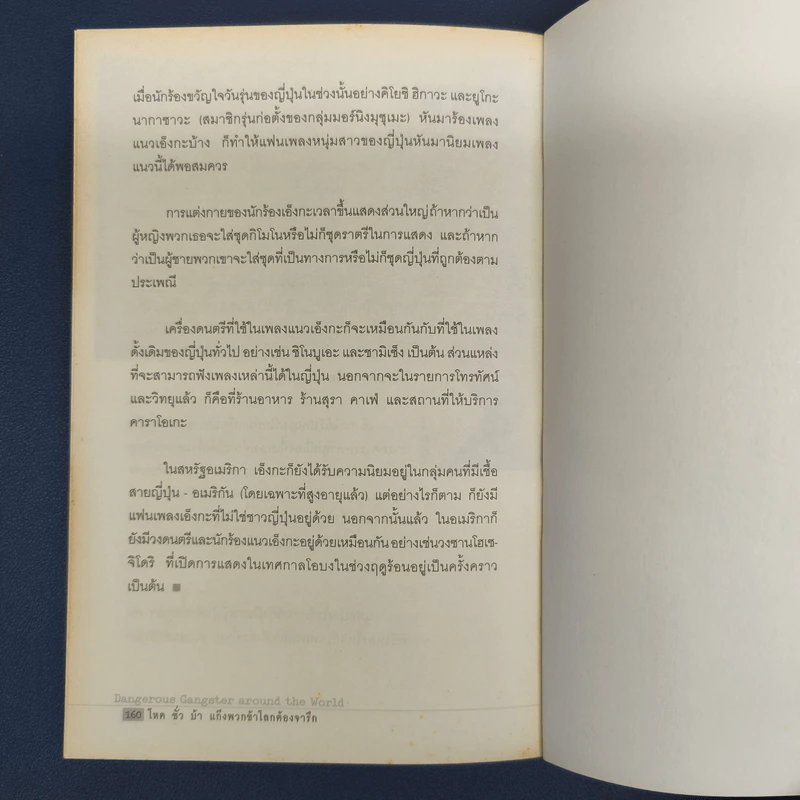 เมื่อนักร้องขวัญใจวันรุ่นของญี่ปุ่นในช่วงนั้นอย่างคิโยชิ ฮิกาวะ และยูโกะ
นากาซาวะ (สมาชิกรุ่นก่อตั้งของกลุ่มมอร์นิงมุซุเมะ) หันมาร้องเพลง
แนวเอ็งกะบ้าง ก็ทำให้แฟนเพลงหนุ่มสาวของญี่ปุ่นหันมานิยมเพลง
แนวนี้ได้พอสมควร
การแต่งกายของนักร้องเอ็งกะเวลาขึ้นแสดงส่วนใหญ่ถ้าหากว่าเป็น
ผู้หญิงพวกเธอจะใส่ชุดกิโมโนหรือไม่ก็ชุดราตรีในการแสดง และถ้าหาก
ว่าเป็นผู้ชายพวกเขาจะใส่ชุดที่เป็นทางการหรือไม่ก็ชุดญี่ปุ่นที่ถูกต้องตาม
ประเพณี
เครื่องดนตรีที่ใช้ในเพลงแนวเอ็งกะก็จะเหมือนกันกับที่ใช้ในเพลง
ดั้งเดิมของญี่ปุ่นทั่วไป อย่างเช่น ชิโนบูเอะ และซามิเซ็ง เป็นต้น ส่วนแหล่ง
ที่จะสามารถฟังเพลงเหล่านี้ได้ในญี่ปุ่น นอกจากจะในรายการโทรทัศน์
และวิทยุแล้ว ก็คือที่ร้านอาหาร ร้านสุรา คาเฟ่ และสถานที่ให้บริการ
คาราโอเกะ
ในสหรัฐอเมริกา เอ็งกะก็ยังได้รับความนิยมอยู่ในกลุ่มคนที่มีเชื้อ
สายญี่ปุ่น - อเมริกัน (โดยเฉพาะที่สูงอายุแล้ว) แต่อย่างไรก็ตาม ก็ยังมี
แฟนเพลงเอ็งกะที่ไม่ใช่ชาวญี่ปุ่นอยู่ด้วย นอกจากนั้นแล้ว ในอเมริกาก็
ยังมีวงดนตรีและนักร้องแนวเอ็งกะอยู่ด้วยเหมือนกัน อย่างเช่นวงซานโฮเซ-
จิโดริ ที่เปิดการแสดงในเทศกาลโอบงในช่วงฤดูร้อนอยู่เป็นครั้งคราว
เป็นต้น
Dangerous Gangster around the World
160 โหด ชั่ว บ้า แก๊งพวกข้าโลกต้องจารึก